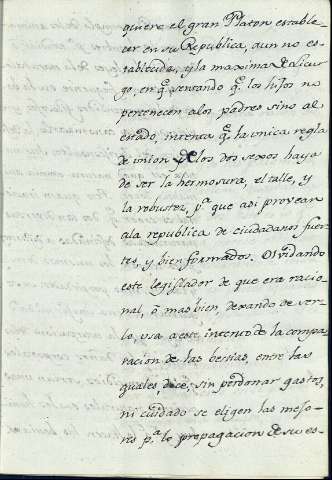 quiere el gran Platon estable-
cer en su Republica, aun no es-
tablecida, y la maxima de Licur-
go, en q.e sentando q.e los hijos no
pertenecen a los padres sino al
estado, intenta q.e la unica regla
de union de los dos sexos haya
de ser la hermosura, el talle, y
la robustez, p.a que asi provean
a la republica de ciudadanos fuer-
tes, y bien formados. Olvidando
este legislador de que era racio-
nal, ò mas bien, dexando de ser-
lo, usa a este intento de la compa-
racion de las bestias, entre las
quales, dice, sin perdonar gastos,
ni cuidado se eligen las mejo-
res p.a la propagacion de su es-